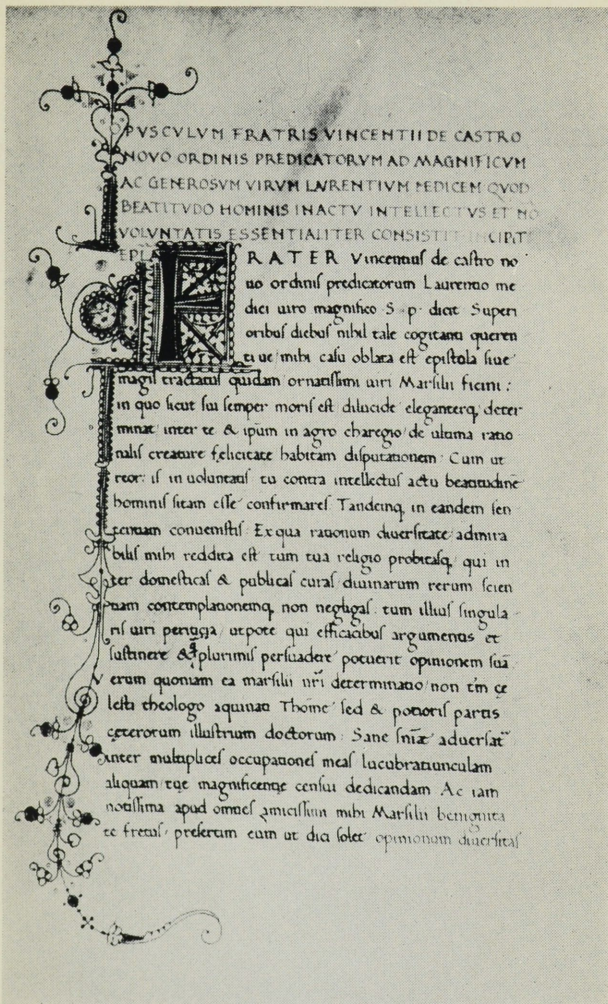 PVSCVLVM FRATRIS VINCENTII DE CASTRO
NOVO ORDINIS PREDICATORVM AD MAGNIFICVM
AC GENEROSVM VIRVM LAVRENTIVM MEDICEM QVOD
BEATITVDO HOMINIS IN ACTV INTELLECTVS ET NO
VOLVNTATIS ESSENTIALITER CONSISTIT INCIPIT
FRATER Vincentius de castro no
uo ordinis predicatorum Laurentio me
dici uiro magnifico S. p. dicit Superi
oribus diebus nihil tale cogitanti queren
ti ue mihi casu oblata est epistola siue
magis tractatus quidam ornatissimi uiri Marsilii ficini:
in quo sicut sui semper moris est dilucide eleganterq; deter
minat inter te & ipsum in agro charegio de ultima ratio
nalis creature felicitate habitam disputationem. Cum ut
reor: is in uoluntatis tu contra intellectus actu beatitudinē
hominis sitam esse confirmares. Tandemq; in eandem sen
tentiam conuenistis. Ex qua rationum diuersitate admira
bilis mihi reddita est tum tua religio probitasq; qui in
ter domesticas & publicas curas diuinarum rerum scien
tiam contemplationemq; non negligas. tum illius singula
ris uiri peritia, utpote qui efficacibus argumentis et
sustinere & plurimis persuadere potuerit opinionem suā
Verum quoniam ea marsilii nr̄i determinatio non tm̄ ce
lesti theologo aquinati Thome sed & potioris partis
ceterorum illustrium doctorum Sane sn̄iæ aduersat
inter multiplices occupationes meas lucubratiunculam
aliquam tue magnificentie censui dedicandam Ac iam
notissima apud omnes amicissimi mihi Marsilii benignita
te fretus, presertim cum ut dici solet opinionum diuersitas